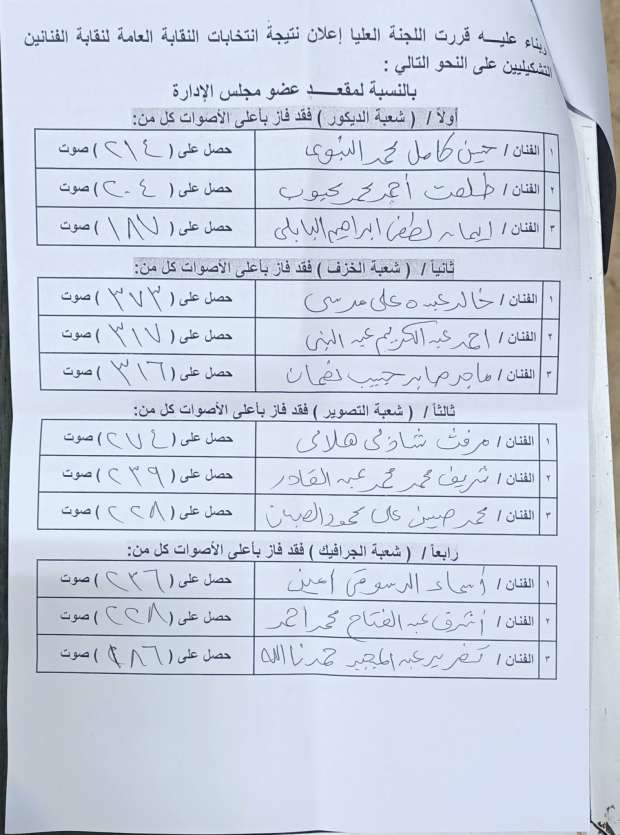 وبناء عليـــه قررت اللجنة العليا إعلان نتيجة انتخابات النقابة العامة لنقابة الفنانين
التشكيليين على النحو التالي :
بالنسبة لمقعـــد عضو مجلس الإدارة
أولاً / ( شعبة الديكور ) فقد فاز بأعلى الأصوات كل من:
١ الفنان / حسين كامل محمد النبوى حصل على ( ٢١٤ ) صوت
٢ الفنان / طلعت أحمد محمد حصل على ( ٢٠٤ ) صوت
٣ الفنان / إيمان لطفى ابراهيم البابلى حصل على ( ١٨٧ ) صوت
ثانياً / ( شعبة الخزف ) فقد فاز بأعلى الأصوات كل من:
١ الفنان / خالد عبده على مرسى حصل على ( ٣٧٣ ) صوت
٢ الفنان / احمد عبد الكريم عبد النبى حصل على ( ٣١٧ ) صوت
٣ الفنان / ماجد صابر حبيب حصل على ( ٣١٦ ) صوت
ثالثاً / ( شعبة التصوير ) فقد فاز بأعلى الأصوات كل من:
١ الفنان / مرفت شاذلى هلالى حصل على ( ٢٧٤ ) صوت
٢ الفنان / شريف محمد محمد عبد القادر حصل على ( ٢٣٩ ) صوت
٣ الفنان / محمد حسين على محمود حصل على ( ٢٢٨ ) صوت
رابعاً / ( شعبة الجرافيك ) فقد فاز بأعلى الأصوات كل من:
١ الفنان / أسماء الدسوقى أمين حصل على ( ٢٣٦ ) صوت
٢ الفنان / أشرف عبد الفتاح محمد احمد حصل على ( ٢٢٨ ) صوت
٣ الفنان / عبد المجيد حصل على ( ١٨٦ ) صوت